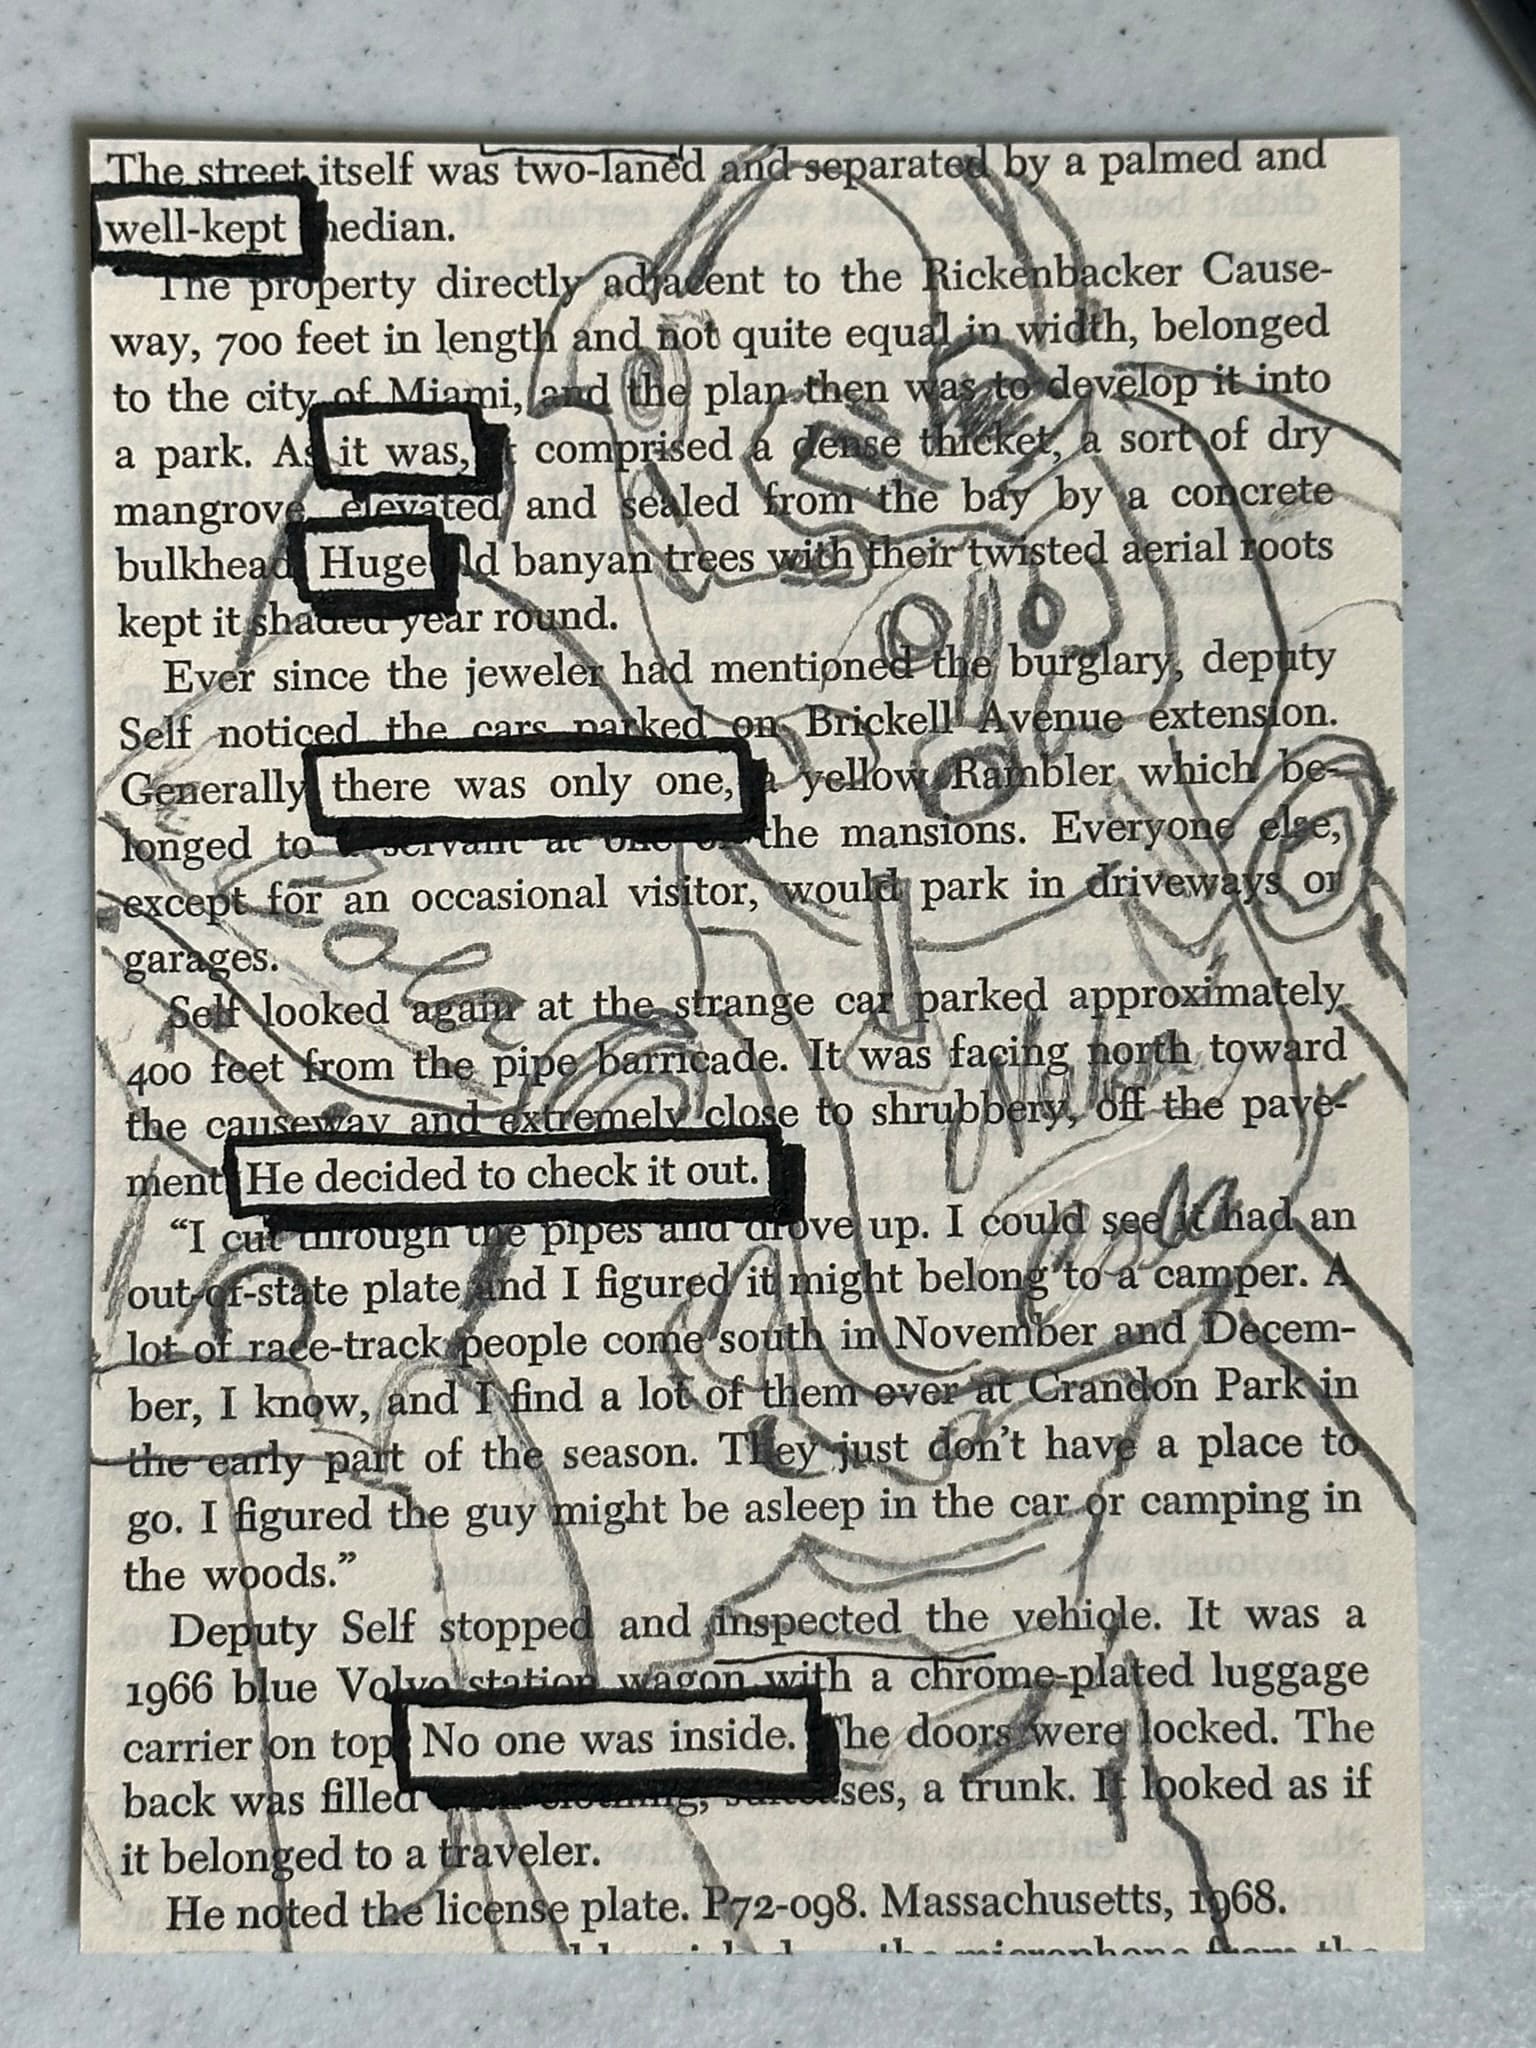 The street itself was two-laned and separated by a palmed and
well-kept median.
The property directly adjacent to the Rickenbacker Cause-
way, 700 feet in length and not quite equal in width, belonged
to the city of Miami, and the plan then was to develop it into
a park. As it was, it comprised a dense thicket, a sort of dry
mangrove elevated and sealed from the bay by a concrete
bulkhead Huge old banyan trees with their twisted aerial roots
kept it shaded year round.
Ever since the jeweler had mentioned the burglary, deputy
Self noticed the cars parked on Brickell Avenue extension.
Generally there was only one, a yellow Rambler which be-
longed to a servant at one of the mansions. Everyone else,
except for an occasional visitor, would park in driveways or
garages.
Self looked again at the strange car parked approximately
400 feet from the pipe barricade. It was facing north toward
the causeway and extremely close to shrubbery, off the pave-
ment He decided to check it out.
“I cut through the pipes and drove up. I could see it had an
out-of-state plate and I figured it might belong to a camper. A
lot of race-track people come south in November and Decem-
ber, I know, and I find a lot of them over at Crandon Park in
the early part of the season. They just don’t have a place to
go. I figured the guy might be asleep in the car or camping in
the woods.”
Deputy Self stopped and inspected the vehicle. It was a
1966 blue Volvo station wagon with a chrome-plated luggage
carrier on top No one was inside. The doors were locked. The
back was filled with clothing, suitcases, a trunk. It looked as if
it belonged to a traveler.
He noted the license plate. P72-098. Massachusetts, 1968.
the microphone from the